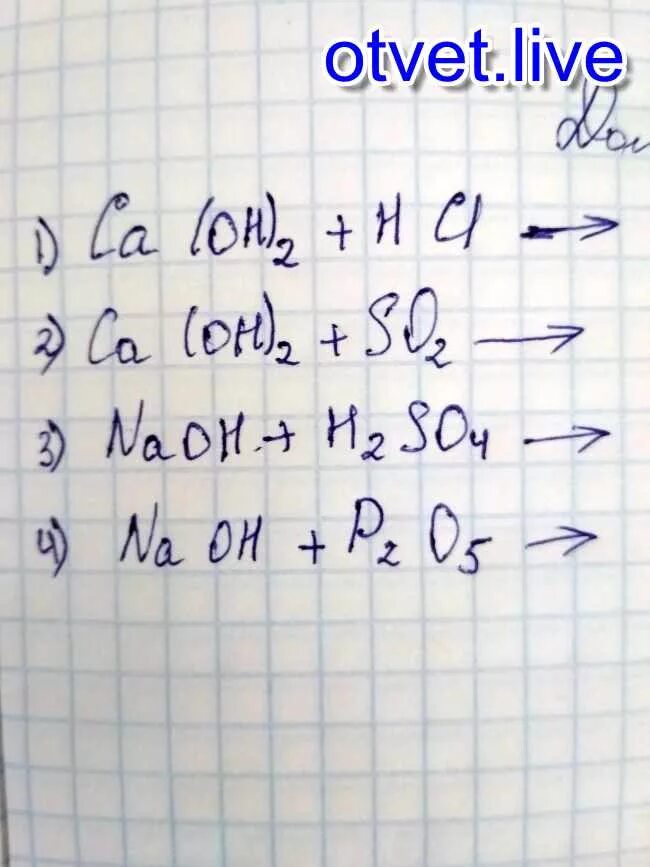 otvet.live
1) Ca (OH)₂ + H Cl →
2) Ca (OH)₂ + SO₂ →
3) NaOH + H₂SO₄ →
4) Na OH + P₂O₅ →